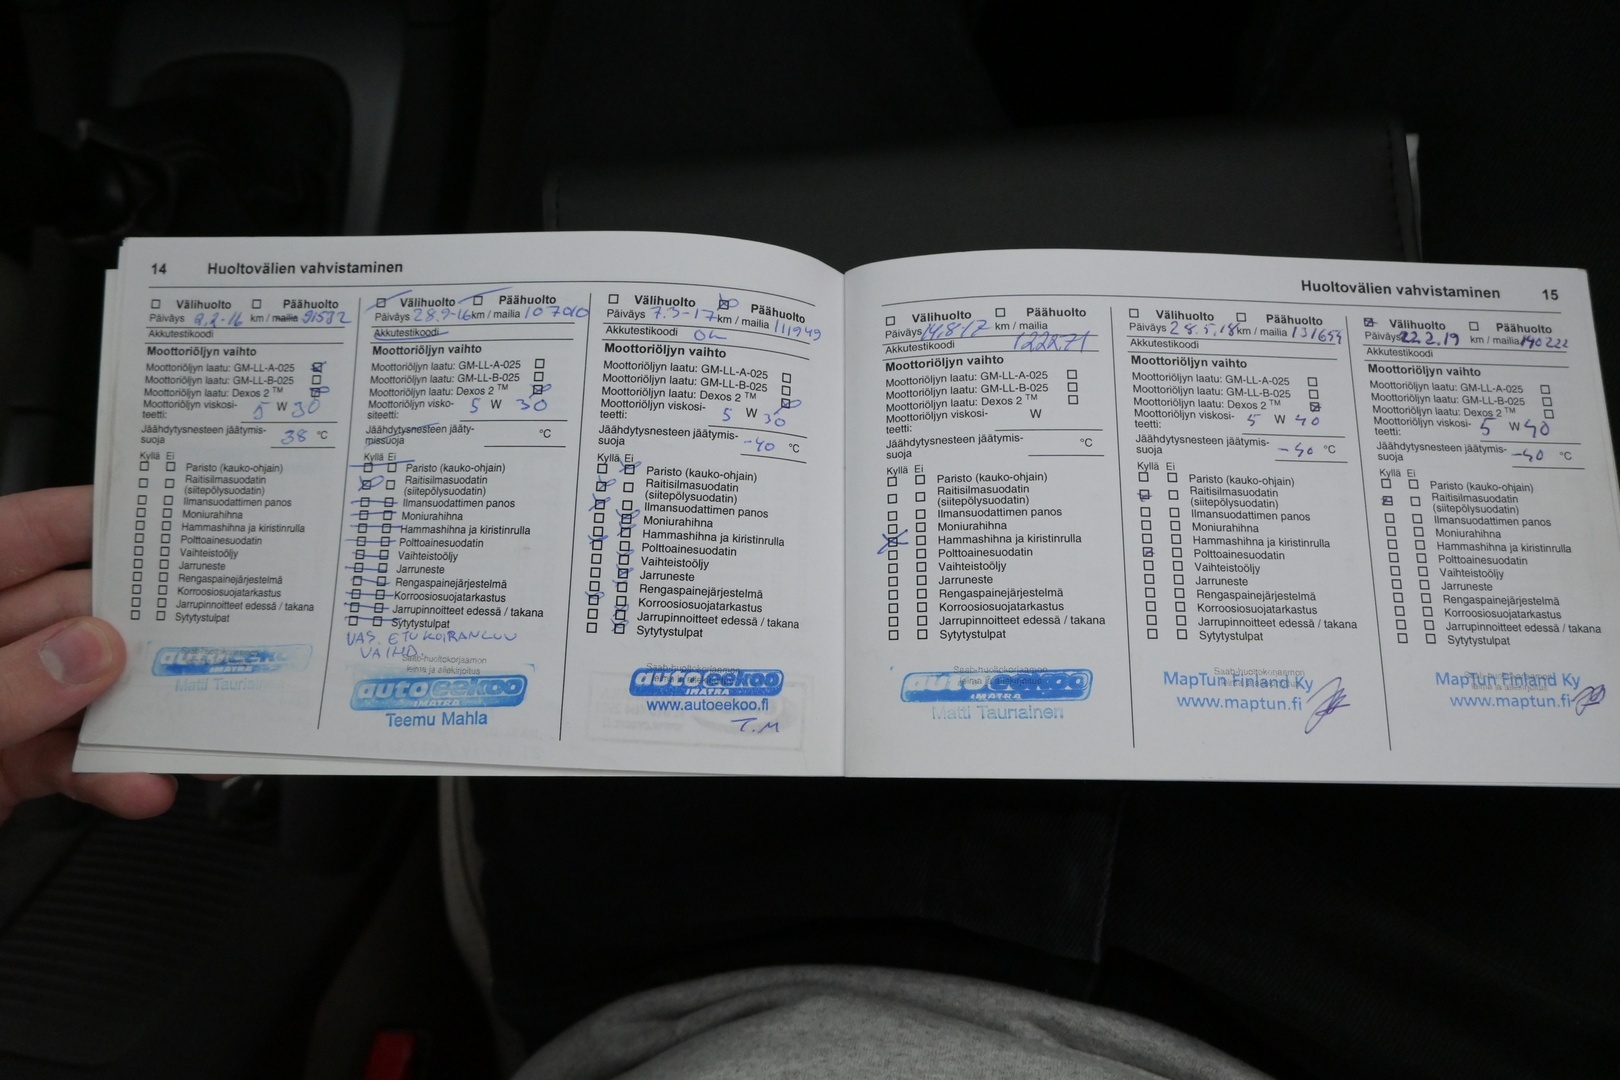 14 Huoltovälien vahvistaminen
Välihuolto Päähuolto
Päiväys 9.2-16 km / mailia 91592
Akkutestikoodi
Moottoriöljyn vaihto
Moottoriöljyn laatu: GM-LL-A-025
Moottoriöljyn laatu: GM-LL-B-025
Moottoriöljyn laatu: Dexos 2 TM
Moottoriöljyn viskosi- 5 W 30
teetti:
Jäähdytysnesteen jäätymis- 38 °C
suoja
Kyllä Ei
Paristo (kauko-ohjain)
Raitisilmasuodatin
(siitepölysuodatin)
Ilmansuodattimen panos
Moniurahihna
Hammashihna ja kiristinrulla
Polttoainesuodatin
Vaihteistoöljy
Jarruneste
Rengaspainejärjestelmä
Korroosiosuojatarkastus
Jarrupinnoitteet edessä / takana
Sytytystulpat
autoeekoo
IMATRA
Matti Tauriainen
Välihuolto Päähuolto
Päiväys 28.9-16 km / mailia 107010
Akkutestikoodi
Moottoriöljyn vaihto
Moottoriöljyn laatu: GM-LL-A-025
Moottoriöljyn laatu: GM-LL-B-025
Moottoriöljyn laatu: Dexos 2 TM
Moottoriöljyn visko- 5 W 30
siteetti:
Jäähdytysnesteen jääty- °C
missuoja
Kyllä Ei
Paristo (kauko-ohjain)
Raitisilmasuodatin
(siitepölysuodatin)
Ilmansuodattimen panos
Moniurahihna
Hammashihna ja kiristinrulla
Polttoainesuodatin
Vaihteistoöljy
Jarruneste
Rengaspainejärjestelmä
Korroosiosuojatarkastus
Jarrupinnoitteet edessä / takana
Sytytystulpat
VAS. ETUKOIRANLUU
VAIHD.
Saab-huoltokorjaamon
leima ja allekirjoitus
autoeekoo
IMATRA
Teemu Mahla
Välihuolto Päähuolto
Päiväys 7.3-17 km / mailia 111949
Akkutestikoodi OK
Moottoriöljyn vaihto
Moottoriöljyn laatu: GM-LL-A-025
Moottoriöljyn laatu: GM-LL-B-025
Moottoriöljyn laatu: Dexos 2 TM
Moottoriöljyn viskosi- 5 W 30
teetti:
Jäähdytysnesteen jäätymis- -40 °C
suoja
Kyllä Ei
Paristo (kauko-ohjain)
Raitisilmasuodatin
(siitepölysuodatin)
Ilmansuodattimen panos
Moniurahihna
Hammashihna ja kiristinrulla
Polttoainesuodatin
Vaihteistoöljy
Jarruneste
Rengaspainejärjestelmä
Korroosiosuojatarkastus
Jarrupinnoitteet edessä / takana
Sytytystulpat
Saab-huoltokorjaamon
autoeekoo
IMATRA
www.autoeekoo.fi
T.M
Huoltovälien vahvistaminen 15
Välihuolto Päähuolto
Päiväys 14.8-17 km / mailia
Akkutestikoodi 122871
Moottoriöljyn vaihto
Moottoriöljyn laatu: GM-LL-A-025
Moottoriöljyn laatu: GM-LL-B-025
Moottoriöljyn laatu: Dexos 2 TM
Moottoriöljyn viskosi- W
teetti:
Jäähdytysnesteen jäätymis- °C
suoja
Kyllä Ei
Paristo (kauko-ohjain)
Raitisilmasuodatin
(siitepölysuodatin)
Ilmansuodattimen panos
Moniurahihna
Hammashihna ja kiristinrulla
Polttoainesuodatin
Vaihteistoöljy
Jarruneste
Rengaspainejärjestelmä
Korroosiosuojatarkastus
Jarrupinnoitteet edessä / takana
Sytytystulpat
Saab-huoltokorjaamon
autoeekoo
IMATRA
Matti Tauriainen
Välihuolto Päähuolto
Päiväys 28.5.18 km / mailia 131654
Akkutestikoodi
Moottoriöljyn vaihto
Moottoriöljyn laatu: GM-LL-A-025
Moottoriöljyn laatu: GM-LL-B-025
Moottoriöljyn laatu: Dexos 2 TM
Moottoriöljyn viskosi- 5 W 40
teetti:
Jäähdytysnesteen jäätymis- -40 °C
suoja
Kyllä Ei
Paristo (kauko-ohjain)
Raitisilmasuodatin
(siitepölysuodatin)
Ilmansuodattimen panos
Moniurahihna
Hammashihna ja kiristinrulla
Polttoainesuodatin
Vaihteistoöljy
Jarruneste
Rengaspainejärjestelmä
Korroosiosuojatarkastus
Jarrupinnoitteet edessä / takana
Sytytystulpat
Saab-huoltokorjaamon
MapTun Finland Ky
www.maptun.fi
Välihuolto Päähuolto
Päiväys 22.2.19 km / mailia 140222
Akkutestikoodi
Moottoriöljyn vaihto
Moottoriöljyn laatu: GM-LL-A-025
Moottoriöljyn laatu: GM-LL-B-025
Moottoriöljyn laatu: Dexos 2 TM
Moottoriöljyn viskosi- 5 W 40
teetti:
Jäähdytysnesteen jäätymis- -40 °C
suoja
Kyllä Ei
Paristo (kauko-ohjain)
Raitisilmasuodatin
(siitepölysuodatin)
Ilmansuodattimen panos
Moniurahihna
Hammashihna ja kiristinrulla
Polttoainesuodatin
Vaihteistoöljy
Jarruneste
Rengaspainejärjestelmä
Korroosiosuojatarkastus
Jarrupinnoitteet edessä / takana
Sytytystulpat
MapTun Finland Ky
www.maptun.fi